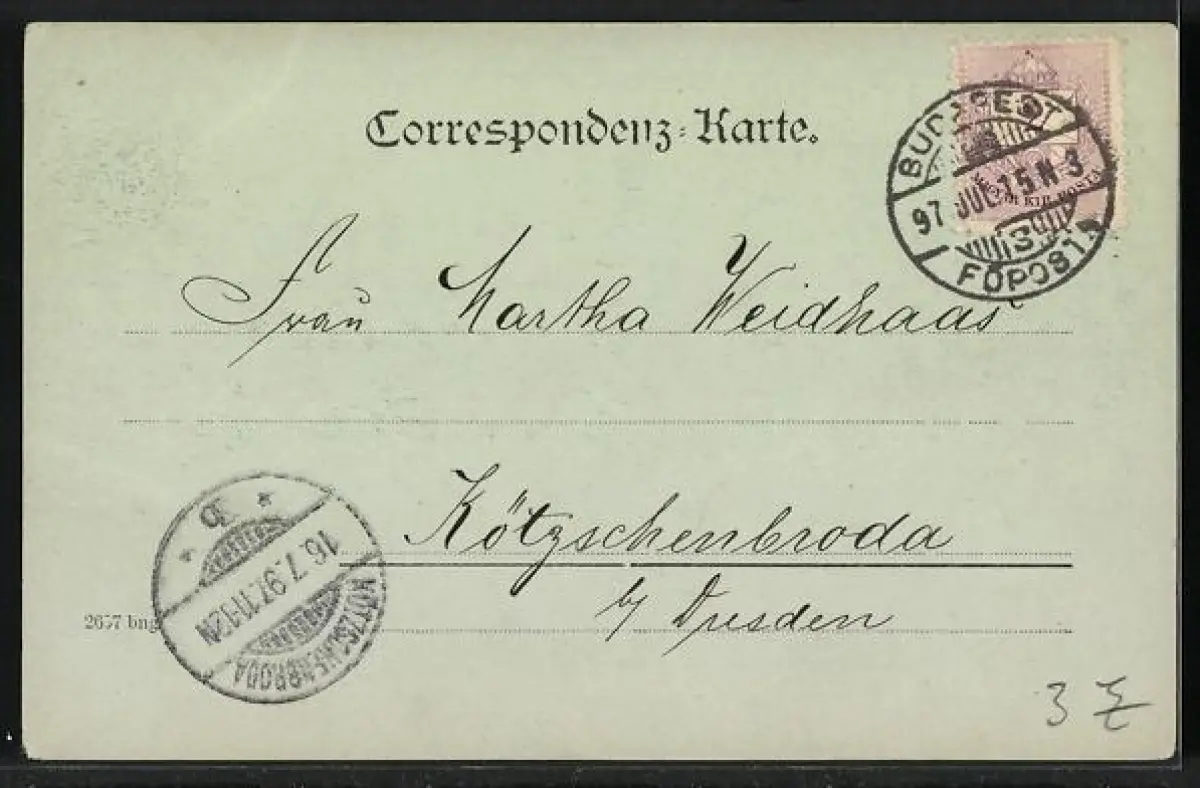 Correspondenz-Karte.
BUDAPEST
97 JUL. 15 N 3
KIR. POSTA
FŐPOSTA
Frau Martha Weidhaas
Kötzschenbroda
b/ Dresden
16.7.97.11-12N
KÖTZSCHENBRODA
2657 bng
3